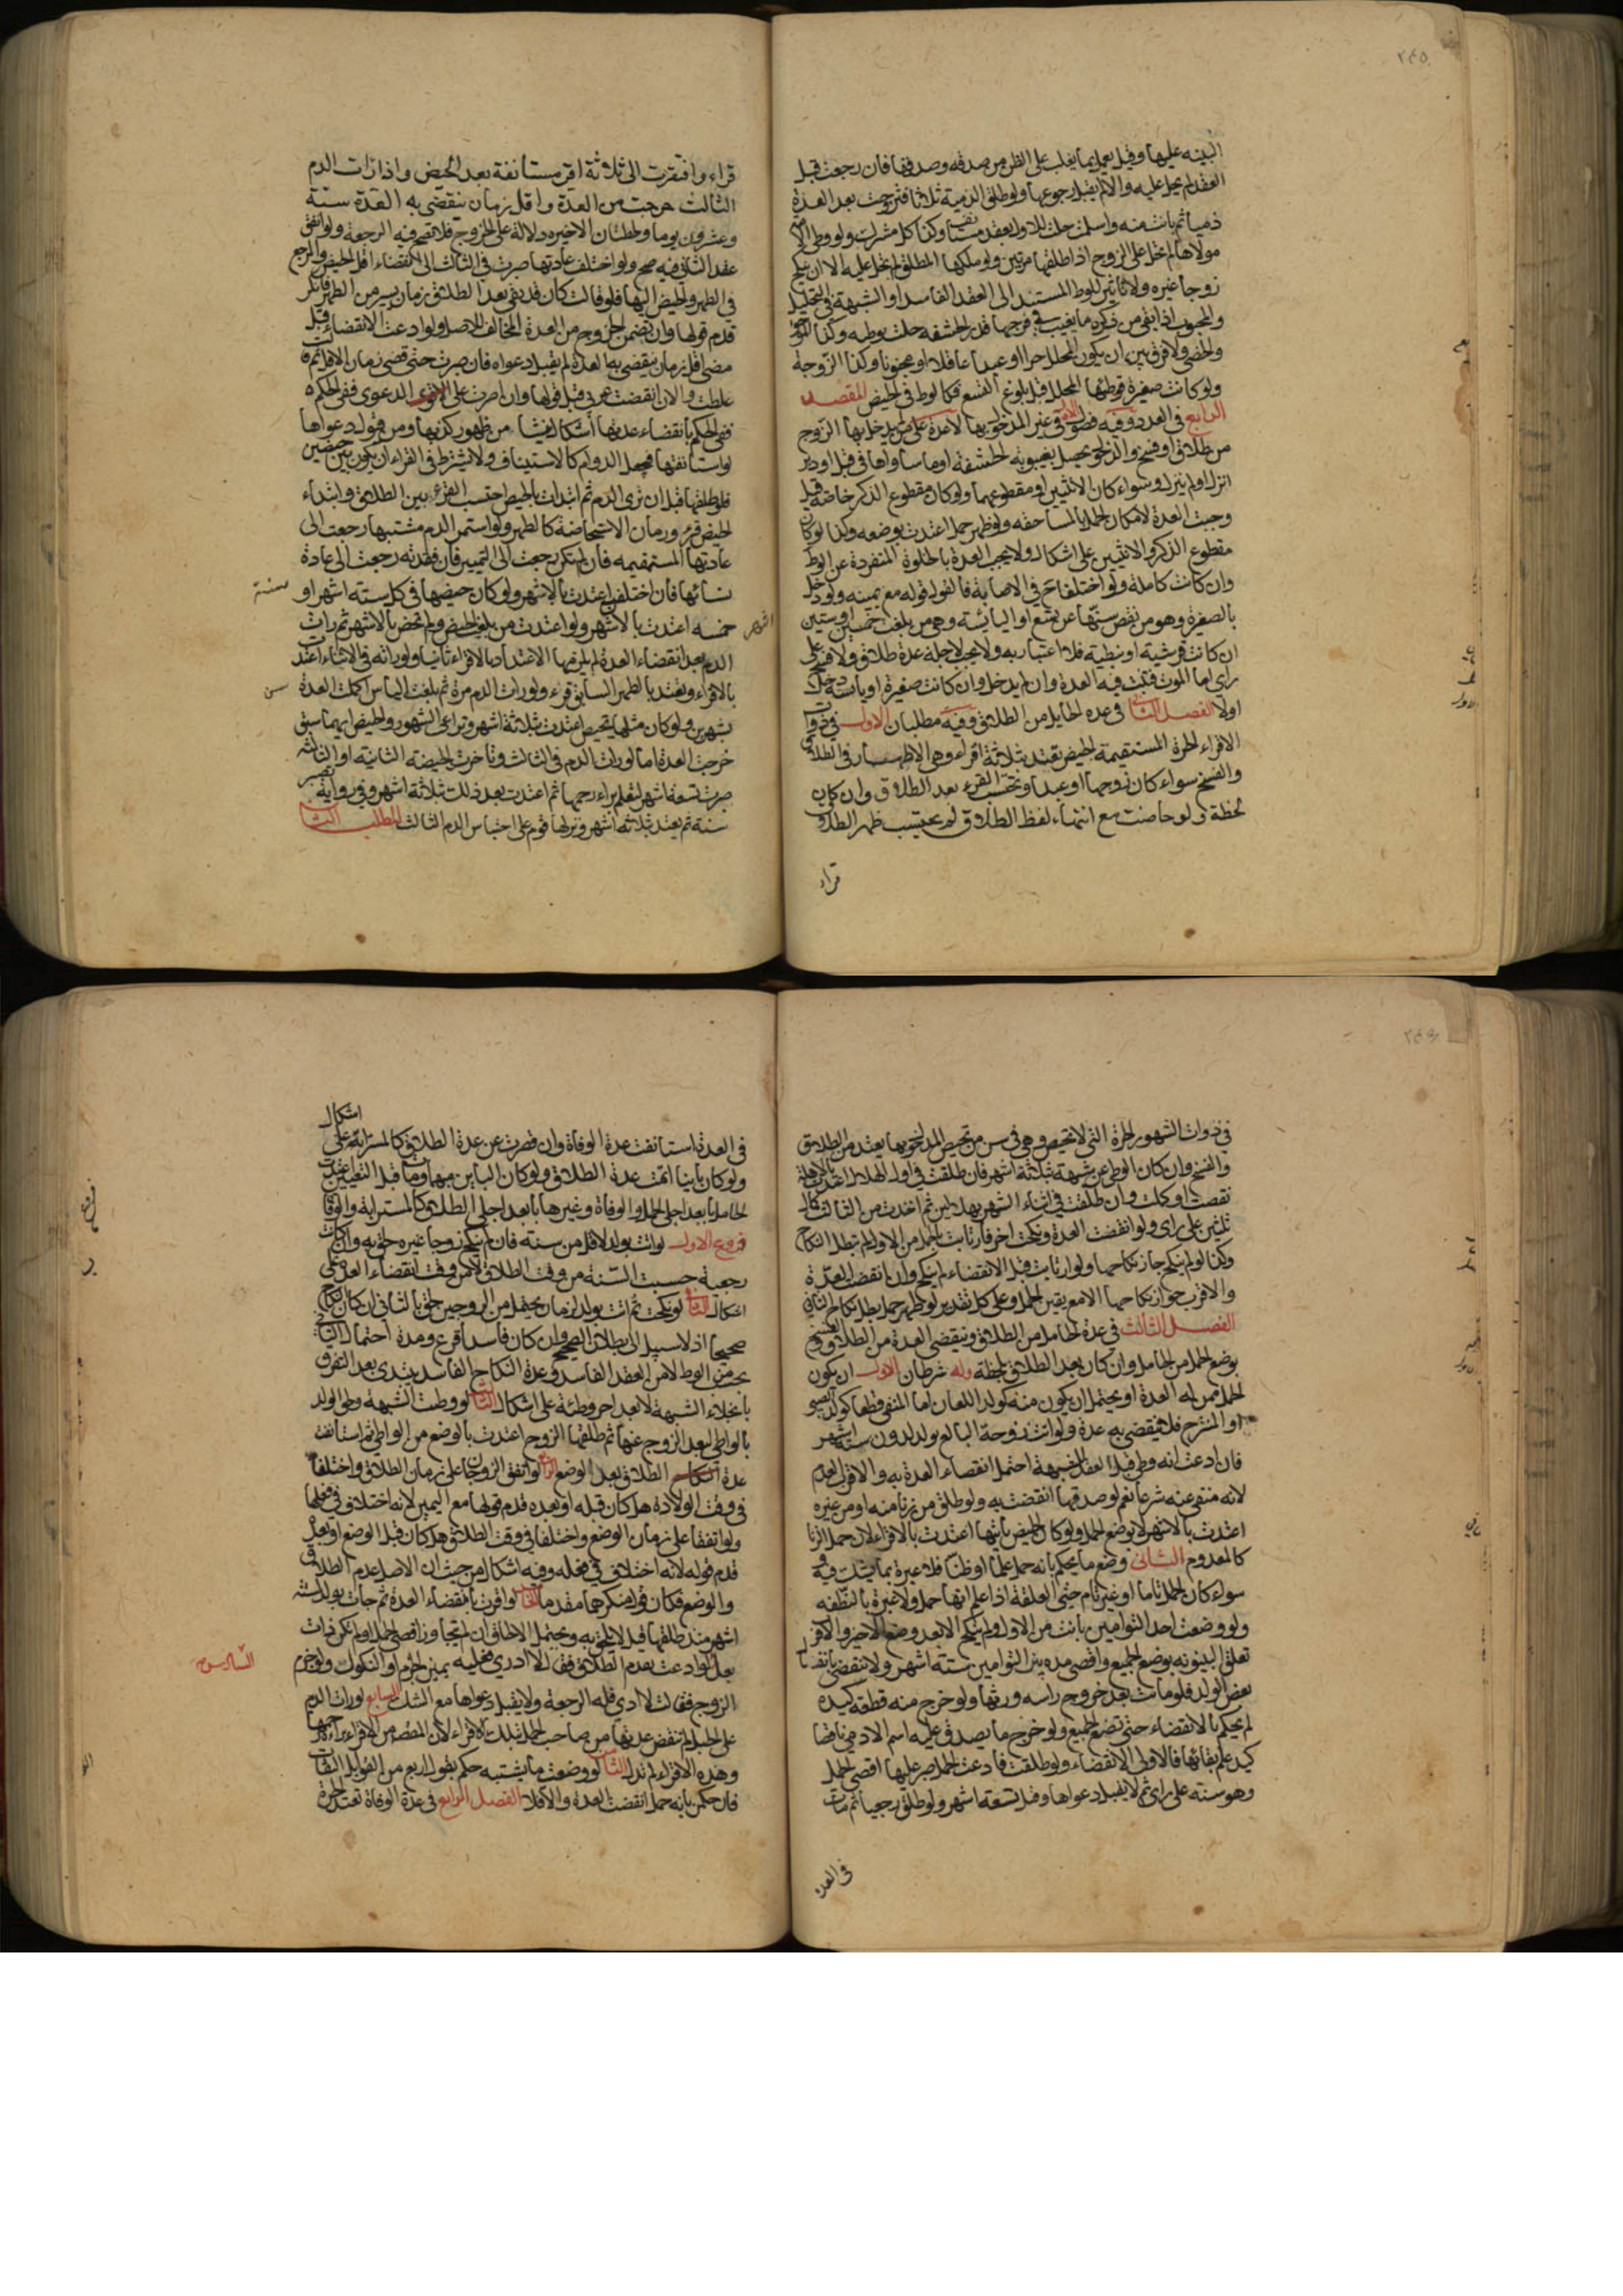 ٢٤٥
البينه عليها وقيل يعمل بما يغلب على الظن من صدقه وصدقها فان رجعت قبل
العقد لم يحل عليه والا لم يقبل رجوعها ولو طلق الذمية ثلاثا فتزوجت بعد العدة
ذميا ثم بانت منه واسلمت حلت للاول بعقد مستأنف وكذا كل مشرك ولو وطئ الامة
مولاها لم تحل على الزوج اذا طلقها مرتين ولو ملكها المطلق لم تحل عليه الا ان ينكح
زوجا غيره ولا تاثير للوطء المستند الى العقد الفاسد او الشبهة في التحليل
والمجبوب اذا بقي من ذكره ما يغيب في فرجها قدر الحشفه حلت بوطيه وكذا الموجوء
والخصي ولا فرق بين ان يكون المحلل حرا او عبدا عاقلا او مجنونا وكذا الزوجة
ولو كانت صغيرة فوطئها المحلل قبل بلوغ التسع فكالوطء في الحيض المقصد
الرابع في العدد وفيه فصول الاول في غير المدخول بها لا عدة على من لم يدخل بها الزوج
من طلاق او فسخ والدخول يحصل بغيبوبة الحشفة او ما ساواها في قبل او دبر
انزل او لم ينزل وسواء كان الانثيين او مقطوعهما ولو كان مقطوع الذكر خاصة قيل
وجبت العدة لامكان الحمل بالمساحقه ولو ظهر حمل اعتدت بوضعه وكذا لو كان
مقطوع الذكر والانثيين على اشكال ولا تجب العدة بالخلوة المنفردة عن الوطء
وان كانت كاملة ولو اختلفا في الاصابة فالقول قوله مع يمينه ولو دخل
بالصغيرة وهو من نقص سنها عن تسع او اليائسة وهي من بلغت خمسين او ستين
ان كانت قرشية او نبطية فلا اعتبار به ولا يجب لاجله عدة طلاق ولا فسخ على
راي اما الموت فتثبت فيه العدة وان لم يدخل وان كانت صغيرة او يائسة دخل
اولا الفصل الثاني في عدة الحايل من الطلاق وفيه مطلبان الاول في ذوات
الاقراء الحرة المستقيمة الحيض تعتد بثلاثة اقراء وهي الاطهار في الطلاق
والفسخ سواء كان زوجها او عبدا وتحتسب القرء بعد الطلاق وان كان
لحظة ولو حاضت مع انتهاء لفظ الطلاق لم يحتسب طهر الطلاق
قراء
قراء وافتقرت الى ثلاثة اقراء مستانفة بعد الحيض واذا رات الدم
الثالث خرجت من العدة واقل زمان تنقضي به العدة ستة
وعشرون يوما ولحظتان الاخيره دلالة على الخروج فلا تصح فيه الرجعة ولو اتفق
عقد الثاني فيه صح ولو اختلف عادتها صبرت في الثالث الى انقضاء اقل الحيض والمرجع
في الطهر والحيض اليها فلو قالت كان قد بقي بعد الطلاق زمان يسير من الطهر فانكر
قدم قولها وان تضمن الخروج من العدة المخالف للاصل ولو ادعت الانقضاء قبل
مضي اقل زمان ينقضي به العدة لم يقبل دعواه فان صبرت حتى قضي زمان الاقل ثم قالت
غلطت والان انقضت عدتي قبل قولها وان اصرت على الدعوى ففي الحكم
ففي الحكم بانقضاء عدتها اشكال ينشا من ظهور كذبها ومن قبول دعواها
لو استانفتها فيجعل الدوام كالاستيناف ولا يشترط في القراء ان يكون بين حيضين
فلو طلقها قبل ان ترى الدم ثم ابتدات بالحيض احتسب القرء بين الطلاق وابتداء
الحيض قرء وزمان الاستحاضة كالطهر ولو استمر الدم مشتبها رجعت الى
عادتها المستقيمه فان لم تكن رجعت الى التمييز فان فقدته رجعت الى عادة
نسائها فان اختلفن اعتدت بالاشهر ولو كان حيضها في كل ستة اشهر او
سنة
خمسه اشهر اعتدت بالاشهر ولو اعتدت من بلغت الحيض ولم تحض بالاشهر ثم رات
الدم بعد انقضاء العدة لم يلزمها الاعتداد بالاقراء ثانيا ولو راته في الاثناء اعتدت
بالاقراء وتعتد بالطهر السابق قرء ولو رات الدم مرة ثم بلغت الياس اكملت العدة
سن
بشهرين ولو كان مثلها تحيض اعتدت بثلاثة اشهر وتراعى الشهور والحيض ايهما سبق
خرجت العدة اما لو رات الدم في الثالث وتاخرت الحيضة الثانية او الثالثة
صبرت تسعة اشهر لتعلم براءة رحمها ثم اعتدت بعد ذلك بثلاثة اشهر وفي رواية تصبر
سنة ثم يعتد بثلاثة اشهر ونزلها قوم على احتباس الدم الثالث المطلب الثاني
٢٤٦
في ذوات الشهور الحرة التي لا تحيض وهي في سن من تحيض المدخول بها يعتد من الطلاق
والفسخ وان كان الوطي عن شبهة بثلاثة اشهر فان طلقت في اول الهلال اعتدت بالاهلة
نقصت او كملت وان طلقت في اثناء الشهر بهلالين ثم اعتدت من الثالث كمال
ثلثين على راي ولو انقضت العدة ونكحت اخر فارتابت بالحمل من الاول لم تبطل النكاح
وكذا لو لم ينكح جاز نكاحها ولو ارتابت قبل الانقضاء لم ينكح وان انقضت العدة
والاقرب جواز نكاحها الا مع يقين الحمل وعلى كل تقدير لو ظهر حمل بطل نكاح الثاني
الفصل الثالث في عدة الحامل من الطلاق وتنقضي العدة من الطلاق والفسخ
بوضع الحمل من الحامل وان كان بعد الطلاق بلحظة وله شرطان الاول ان يكون
الحمل ممن له العدة او يحتمل ان يكون منه كولد اللعان اما المنفي قطعا كولد الصبي
او المنزح فلا تنقضي به عدة ولو اتت زوجة البالغ بولد لدون ستة اشهر
فان ادعت انه وطئ قبل العقد للشبهة احتمل انقضاء العدة به والاقرب العدم
لانه منتفي عنه شرعا نعم لو صدقها انقضت به ولو طلق من زنا منه او من غيره
اعتدت بالاشهر لا بوضع الحمل ولو كان الحيض يأتيها اعتدت بالاقراء لان حمل الزنا
كالمعدوم الثاني وضع ما يحكم بانه حمل علما او ظنا فلا عبرة بما يشك فيه
سواء كان الحمل تاما او غير تام حتى العلقة اذا علم انها حمل ولا عبرة بالنطفه
ولو وضعت احد التوامين بانت من الاول ولم ينكح الا بعد وضع الاخير والاقرب
تعلق البينونه بوضع الجميع واقصى مده بين التوامين ستة اشهر ولا تنقضي بانفصال
بعض الولد فلو ماتت بعد خروج راسه ورثها ولو خرج منه قطعة كيده
لم يحكم بالانقضاء حتى تضع الجميع ولو خرج ما يصدق عليه اسم الادمي ناقصا
كيد علم بقائها فالاولى الانقضاء ولو طلقت فادعت الحمل صبر عليها اقصى الحمل
وهو سنة على راي ثم لا يقبل دعواها وقيل تسعة اشهر ولو طلق رجعيا ثم مات
في العدة
اشكال
في العدة استانفت عدة الوفاة وان قصرت عن عدة الطلاق كالمسترابة على
ولو كان باينا اتمت عدة الطلاق ولو كان الباين مبهما ومات قبل التعيين اعتدت
الحامل بابعد اجلي الحمل والوفاة وغيرها بابعد اجلي الطلاق كالمسترابة والوفاة
فروع الاول لو اتت بولد لاقل من سنة فان لم ينكح زوجا غيره لحق به وان كانت
رجعية حسبت السنة من وقت الطلاق لا من وقت انقضاء العدة على
اشكال الثاني لو نكحت ثم اتت بولد لزمان يحتمل من الزوجين لحق بالثاني ان كان النكاح
صحيحا اذ لا سبيل الى بطلان الصحيح وان كان فاسدا اقرع ومدة احتمال الثاني
يحسب من الوطء لا من العقد الفاسد وعدة النكاح الفاسد يبتدي بعد التفرق
بانجلاء الشبهة لا بعد اخر وطئة على اشكال الثالث لو وطئت الشبهة ولحق الولد
بالواطي لبعد الزوج عنها ثم طلقها الزوج اعتدت بالوضع من الواطي ثم استانفت
عدة الطلاق بعد الوضع الرابع لو اتفق الزوجان على زمان الطلاق واختلفا
في وقت الولادة هل كان قبله او بعده قدم قولها مع اليمين لانه اختلاف في فعلها
ولو اتفقا على زمان الوضع واختلفا في وقت الطلاق هل كان قبل الوضع او بعده
قدم قوله لانه اختلاف في فعله وفيه اشكال من حيث ان الاصل عدم الطلاق
والوضع فكان قول منكرهما مقدما الخامس لو اقرت بانقضاء العدة ثم جات بولد لستة
اشهر منذ طلقها قيل لا يلحق به ويحتمل الالحاق ان لم يتجاوز اقصى الحمل ولم تكن ذات
السادس
بعل لو ادعت تقدم الطلاق فقال لا ادري فعليه يمين الجزم او النكول ولو جزم
الزوج فقالت لا ادري فله الرجعة ولا يقبل دعواها مع الشك السابع لو رات الدم
على الحبل لم تنقض عدتها من صاحب الحمل بتلك الاقراء لان المقصد من الاقراء براءة رحمها
وهذه الاقراء لم تدل الثامن لو وضعت ما يشتبه حكم بقول اربع من القوابل الثقات
فان حكمن بانه حمل انقضت العدة والا فلا الفصل الرابع في عدة الوفاة تعتد الحرة